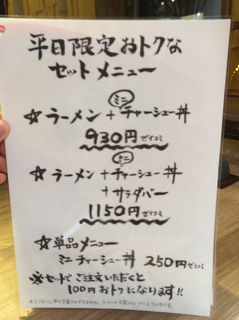 平日限定おトクな
セットメニュー
☆ラーメン+ミニチャーシュー丼
930円ゼイコミ
☆ラーメン+ミニチャーシュー丼
+サラダバー
1150円ゼイコミ
☆単品メニュー
ミニチャーシュー丼 250円ゼイコミ
※セットでご注文いただくと
100円おトクになります!!